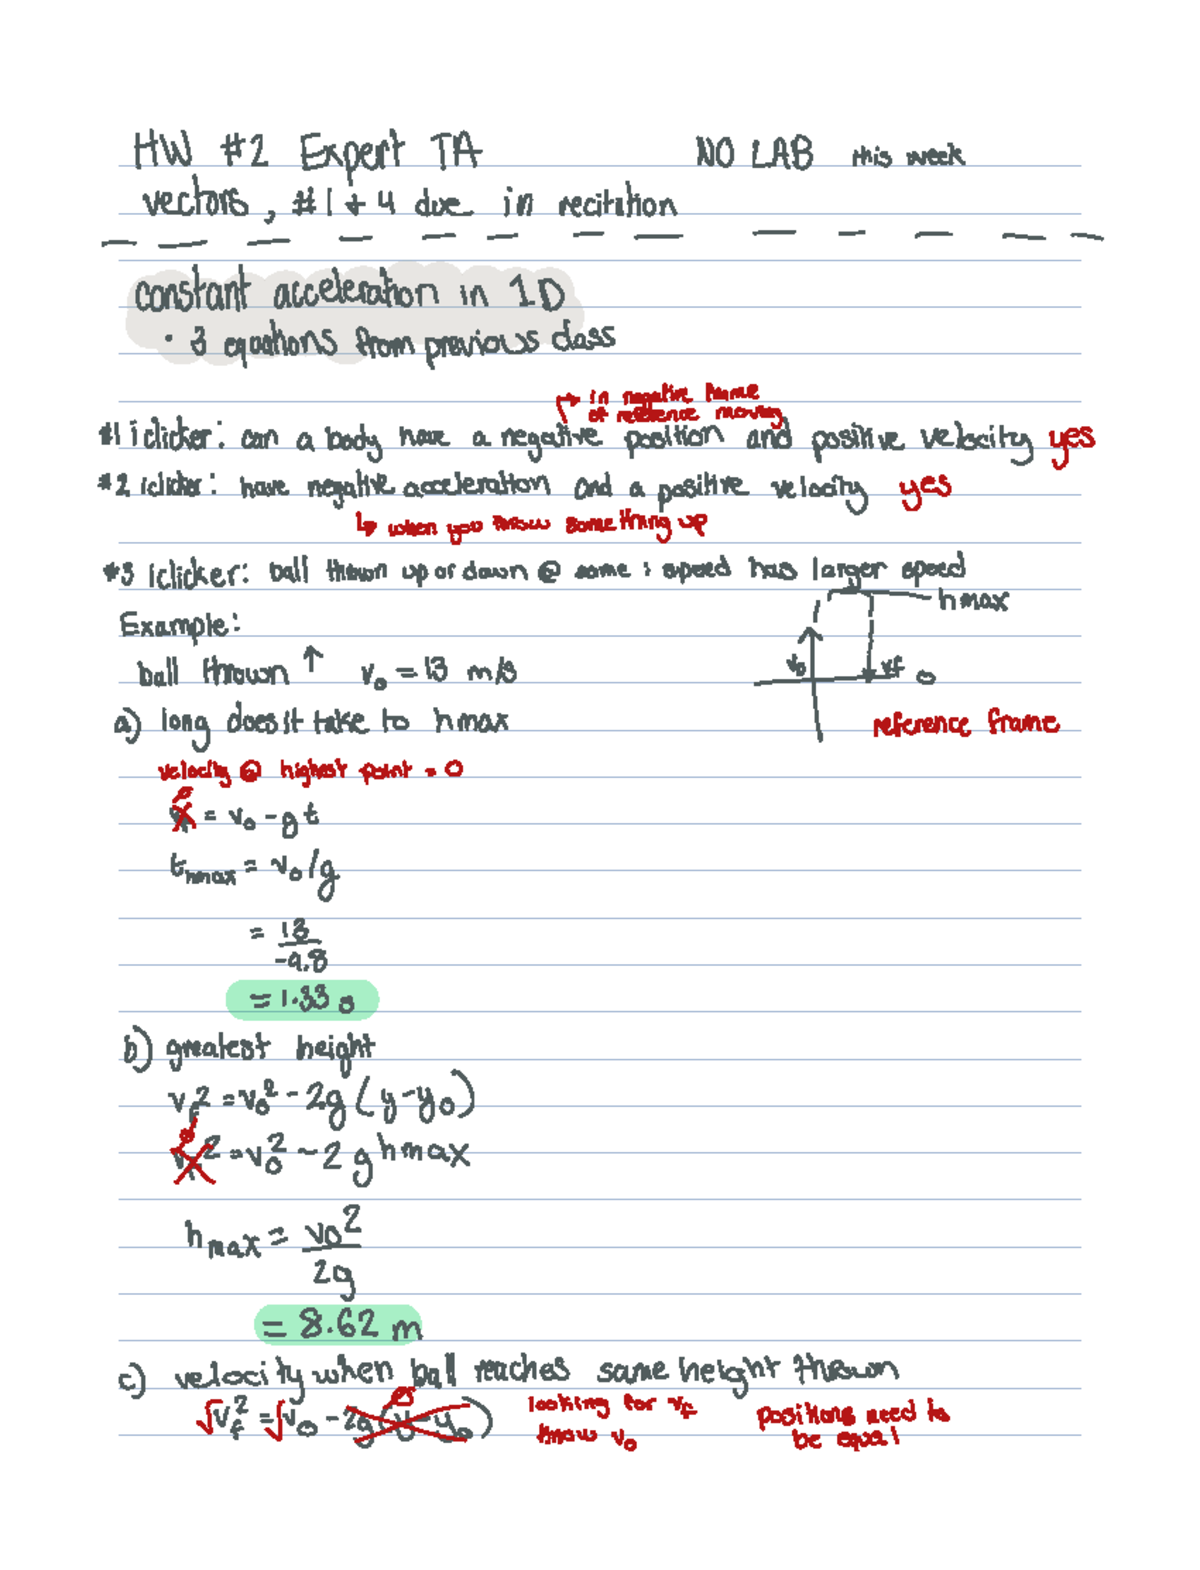 HW #2 Expert TA NO LAB this week
vectors, #1 + 4 due in recitation
constant acceleration in 1D
• 3 equations from previous class
↱ in negative frame
of reference moving
#1 iclicker: can a body have a negative position and positive velocity yes
#2 iclicker: have negative acceleration and a positive velocity yes
↳ when you throw something up
#3 iclicker: ball thrown up or down @ same : speed has larger speed
hmax
Example:
ball thrown ↑ v₀ = 13 m/s
v₀ vf 0
a) long does it take to hmax
reference frame
velocity @ highest point = 0
0
vf = v₀ - gt
t hmax = v₀/g
= 13
-9.8
= 1.33 s
b) greatest height
vf² = v₀² - 2g (y-y₀)
0
vf² = v₀² - 2g hmax
hmax = v₀²
2g
= 8.62 m
c) velocity when ball reaches same height thrown
0 looking for vf
√vf² = √v₀ - 2g(y-y₀) positions need to
know v₀ be equal